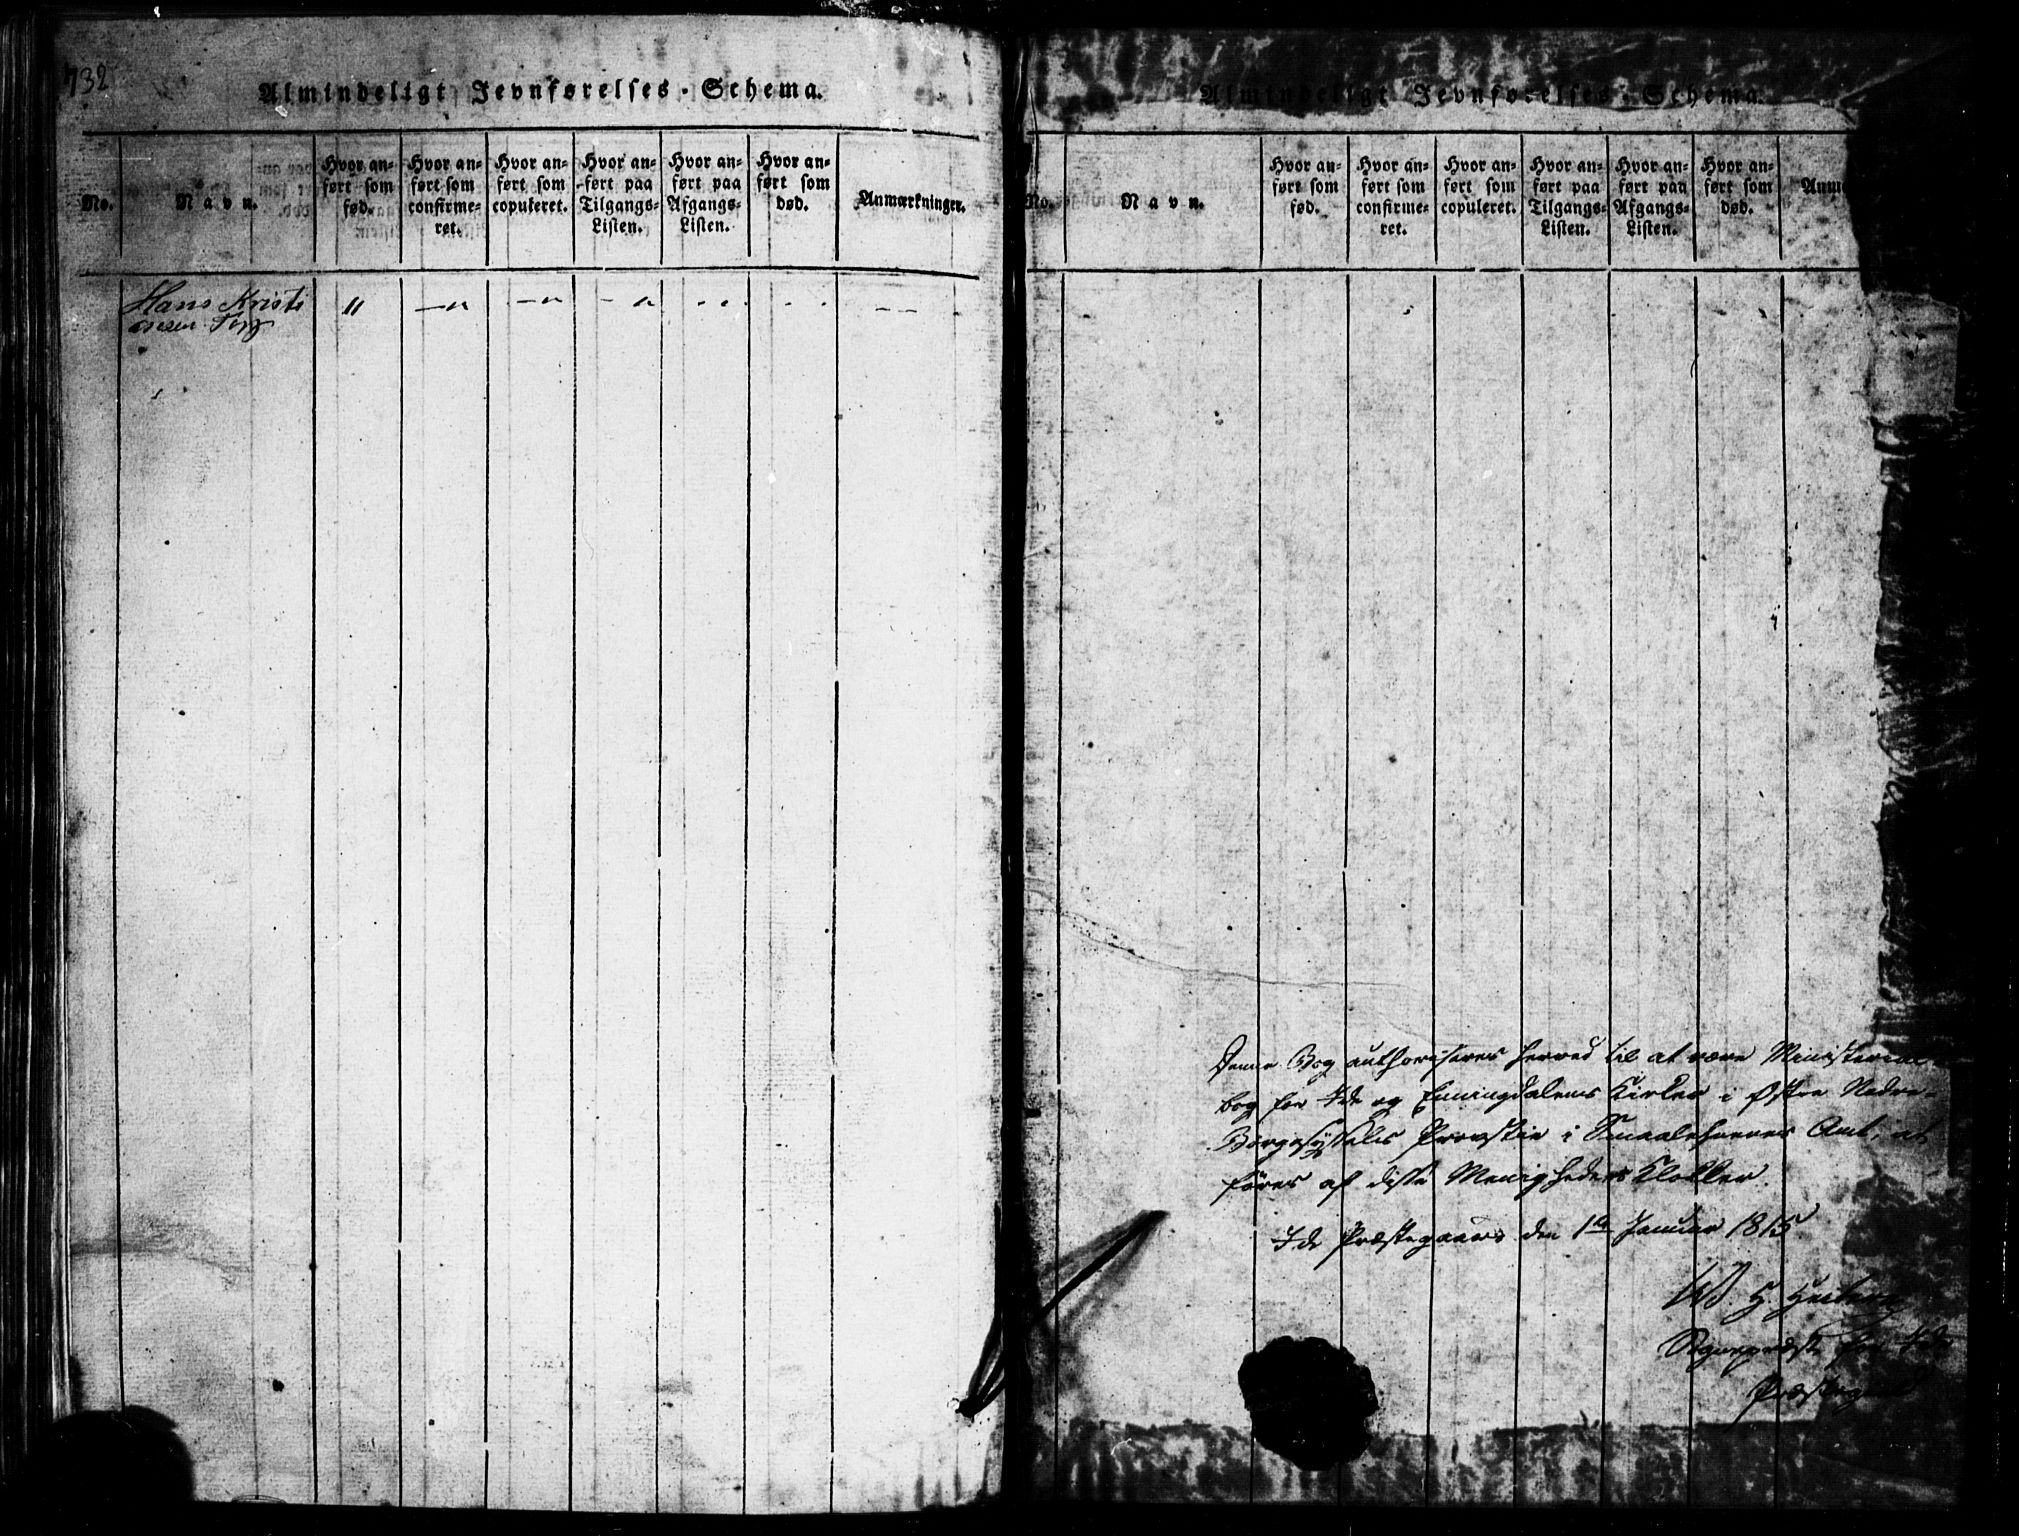 732
Almindeligt Jevnførelses-Schema.
No.
Navn.
Hvor an-
ført som
fød.
Hvor an-
ført som
confirme-
ret.
Hvor an-
ført som
copuleret.
Hvor an-
ført paa
Tilgangs-
Listen.
Hvor an-
ført paa
Afgangs-
Listen.
Hvor an-
ført som
død.
Anmærkninger.
Hans Kristi
Almindeligt Jevnførelses-Schema.
No.
Navn.
Hvor an-
ført som
fød.
Hvor an-
ført som
confirme-
ret.
Hvor an-
ført som
copuleret.
Hvor an-
ført paa
Tilgangs-
Listen.
Hvor an-
ført paa
Afgangs-
Listen.
Hvor an-
ført som
død.
Denne Bog authoriseres herved til at være Ministerial-
bog for Ide og Enningdalens Kirker i Østre Nedre-
Borgesyssels Provstie i Smaalehnenes Amt, at
føres af disse Menigheders Klokker.
Ide Præstegaard den 1te Januar 1815
Sognepræst for Ide